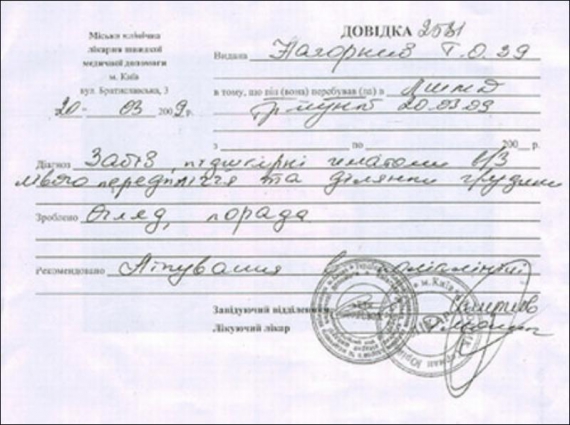 Міська клінічна
лікарня швидкої
медичної допомоги
м. Київ
вул. Братиславська, 3
20 - 03 2009 р.
ДОВІДКА 2581
Видана Нагорний Т. О. 39
в тому, що він (вона) перебував (ла) в
травмпункті 20.03.09
з по 200 р.
Діагноз Забій, підшкірні гематоми н/з
лівого передпліччя та ділянки грудини
Зроблено Огляд, порада
Рекомендовано Лікування в поліклініці
Завідуючий відділення
Лікуючий лікар
м. Київ